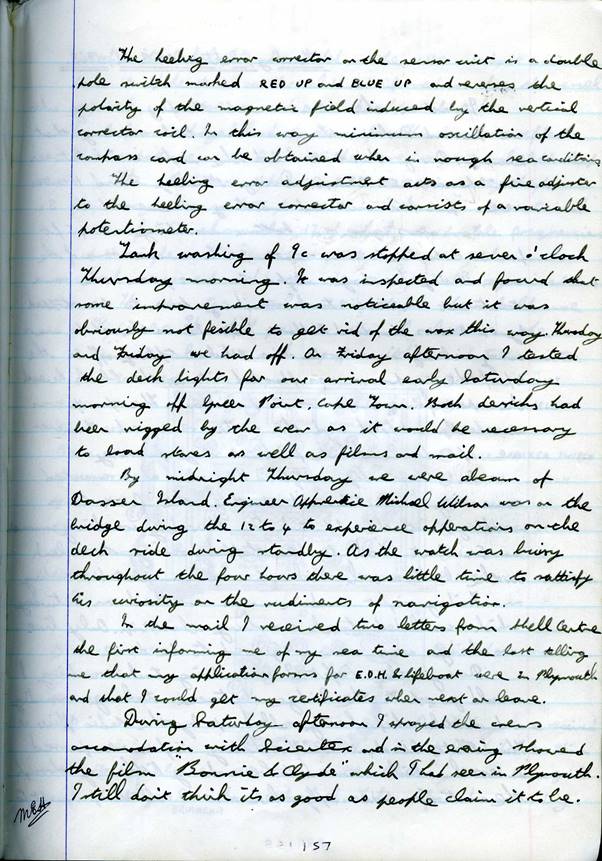 The heeling error corrector on the sensor unit is a double
pole switch marked RED UP and BLUE UP and reverses the
polarity of the magnetic field induced by the vertical
corrector coil. In this way minimum oscillation of the
compass card can be obtained when in rough sea conditions
The heeling error adjustment acts as a fine adjuster
to the heeling error corrector and consists of a variable
potentiometer.
Tank washing of 9c was stopped at seven o'clock
Thursday morning. It was inspected and found that
some improvement was noticeable but it was
obviously not fesible to get rid of the wax this way. Thursday
and Friday we had off. On Friday afternoon I tested
the deck lights for our arrival early Saturday
morning off Green Point, Cape Town. Both derricks had
been rigged by the crew as it would be necessary
to load stores as well as films and mail.
By midnight Thursday we were abeam of
Dassen Island. Engineer Apprentice Michael Wilson was on the
bridge during the 12 to 4 to experience opperations on the
deck side during standby. As the watch was busy
throughout the four hours there was little time to sattisfy
his curiosity on the rudiments of navigation.
In the mail I received two letters from Shell Centre
the first informing me of my sea time and the last telling
me that my application forms for E.D.H. & Lifeboat were in Plymouth
and that I could get my certificates when next on leave.
During Saturday afternoon I sprayed the crews
accomodation with and in the evening showed
the film "Bonnie & Clyde" which I had seen in Plymouth.
I still don't think its as good as people claim it to be.
157